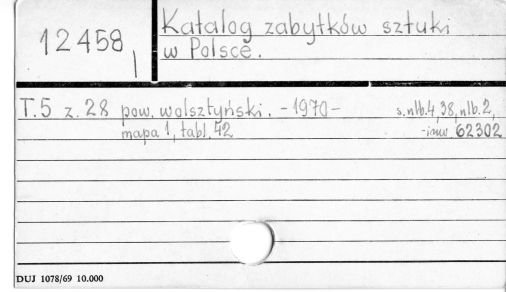 12458
Katalog zabytków sztuki
w Polsce.
T.5 z.28 pow. wolsztyński. -1970- s.nlb.4,38,nlb.2,
mapa 1, tabl. 42 -inw. 62302
DUJ 1078/69 10.000